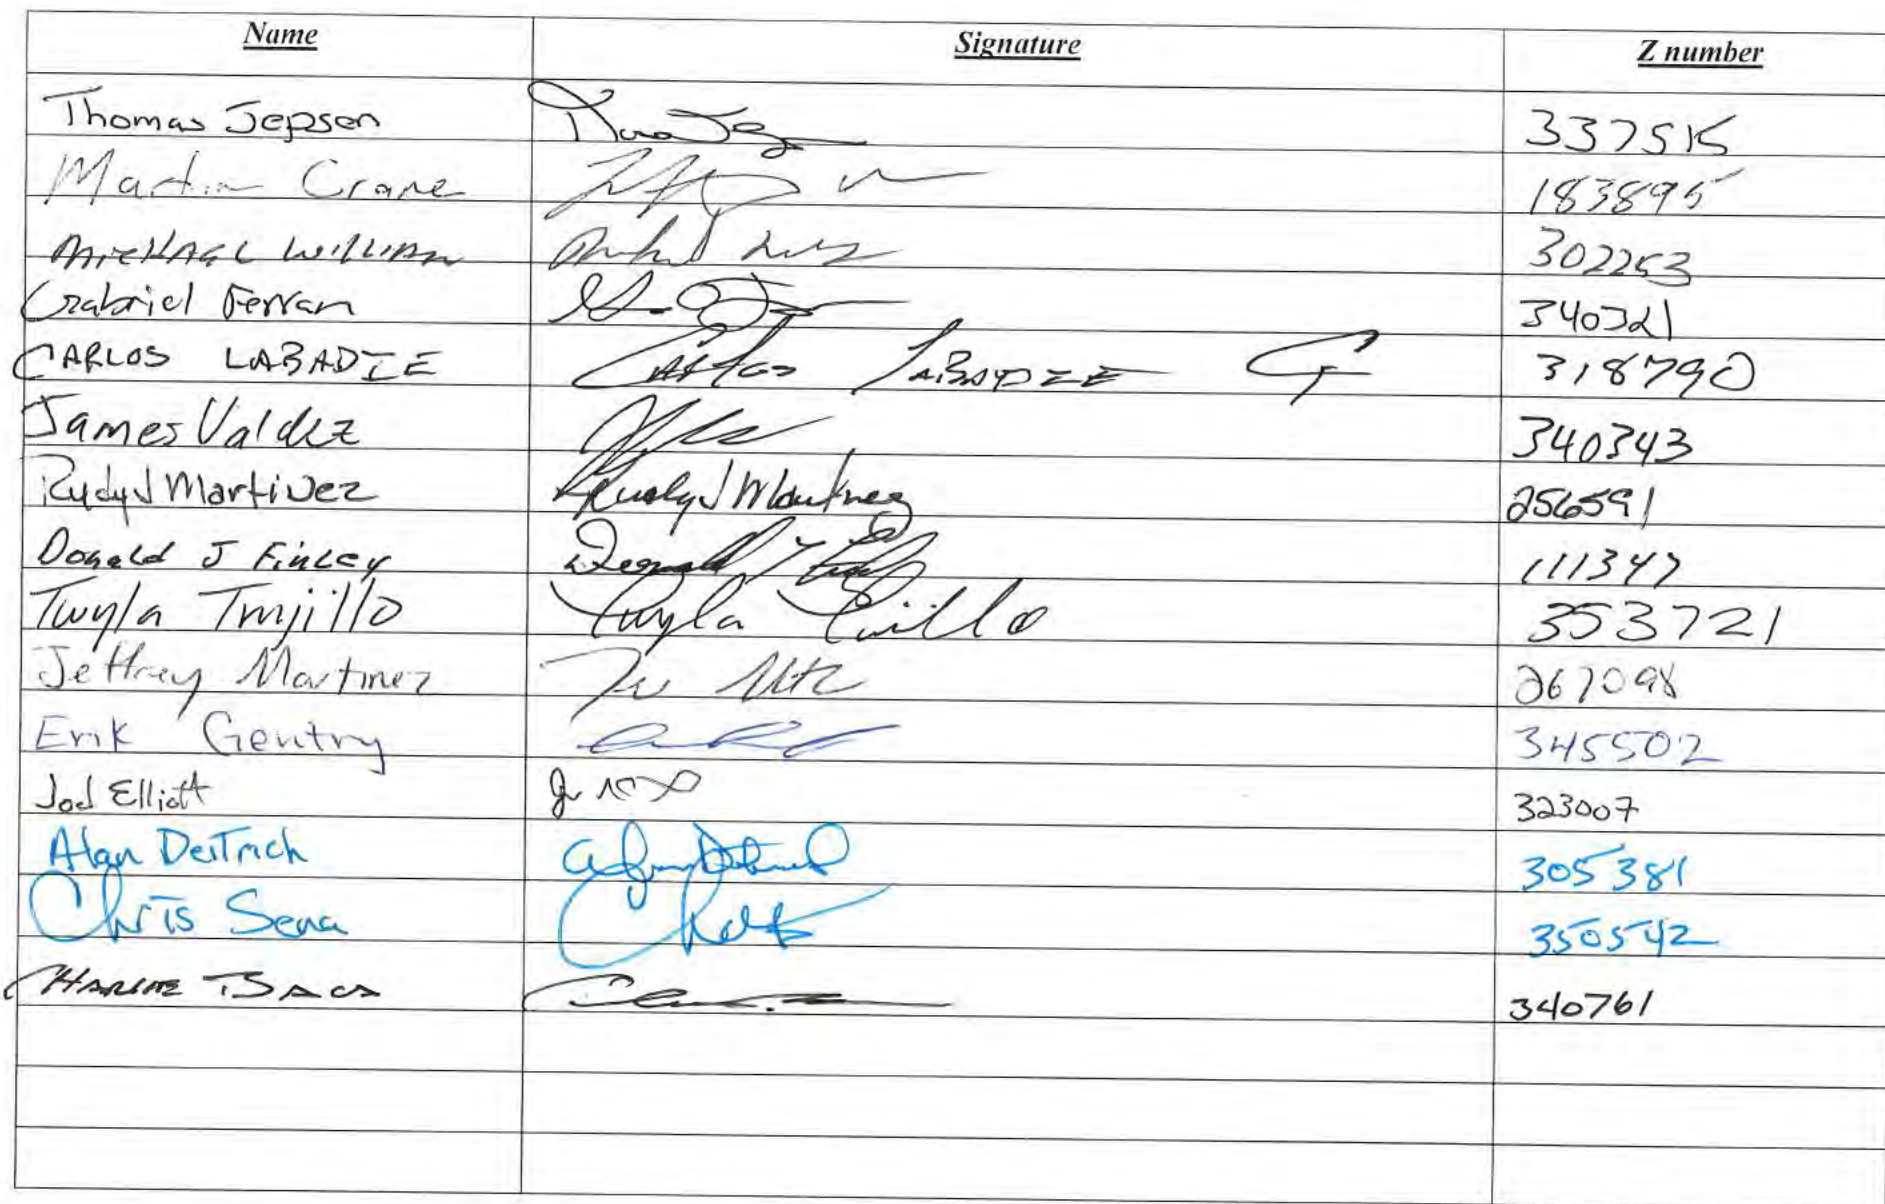 Name Signature Z number
Thomas Jepsen 337515
Martin Crane 183895
Michael William 302253
Gabriel Ferran 340321
CARLOS LABADIE Carlos LABADIE C 318790
James Valdez 340343
Rudy J Martinez Rudy J Martinez 256591
Donald J Finley Donald J Finley 111347
Twyla Trujillo Twyla Trujillo 353721
Jeffrey Martinez 267098
Erik Gentry 345502
Joel Elliott 323007
Alan Deitrich 305381
Chris Sena 350542
CHARLIE BACA 340761